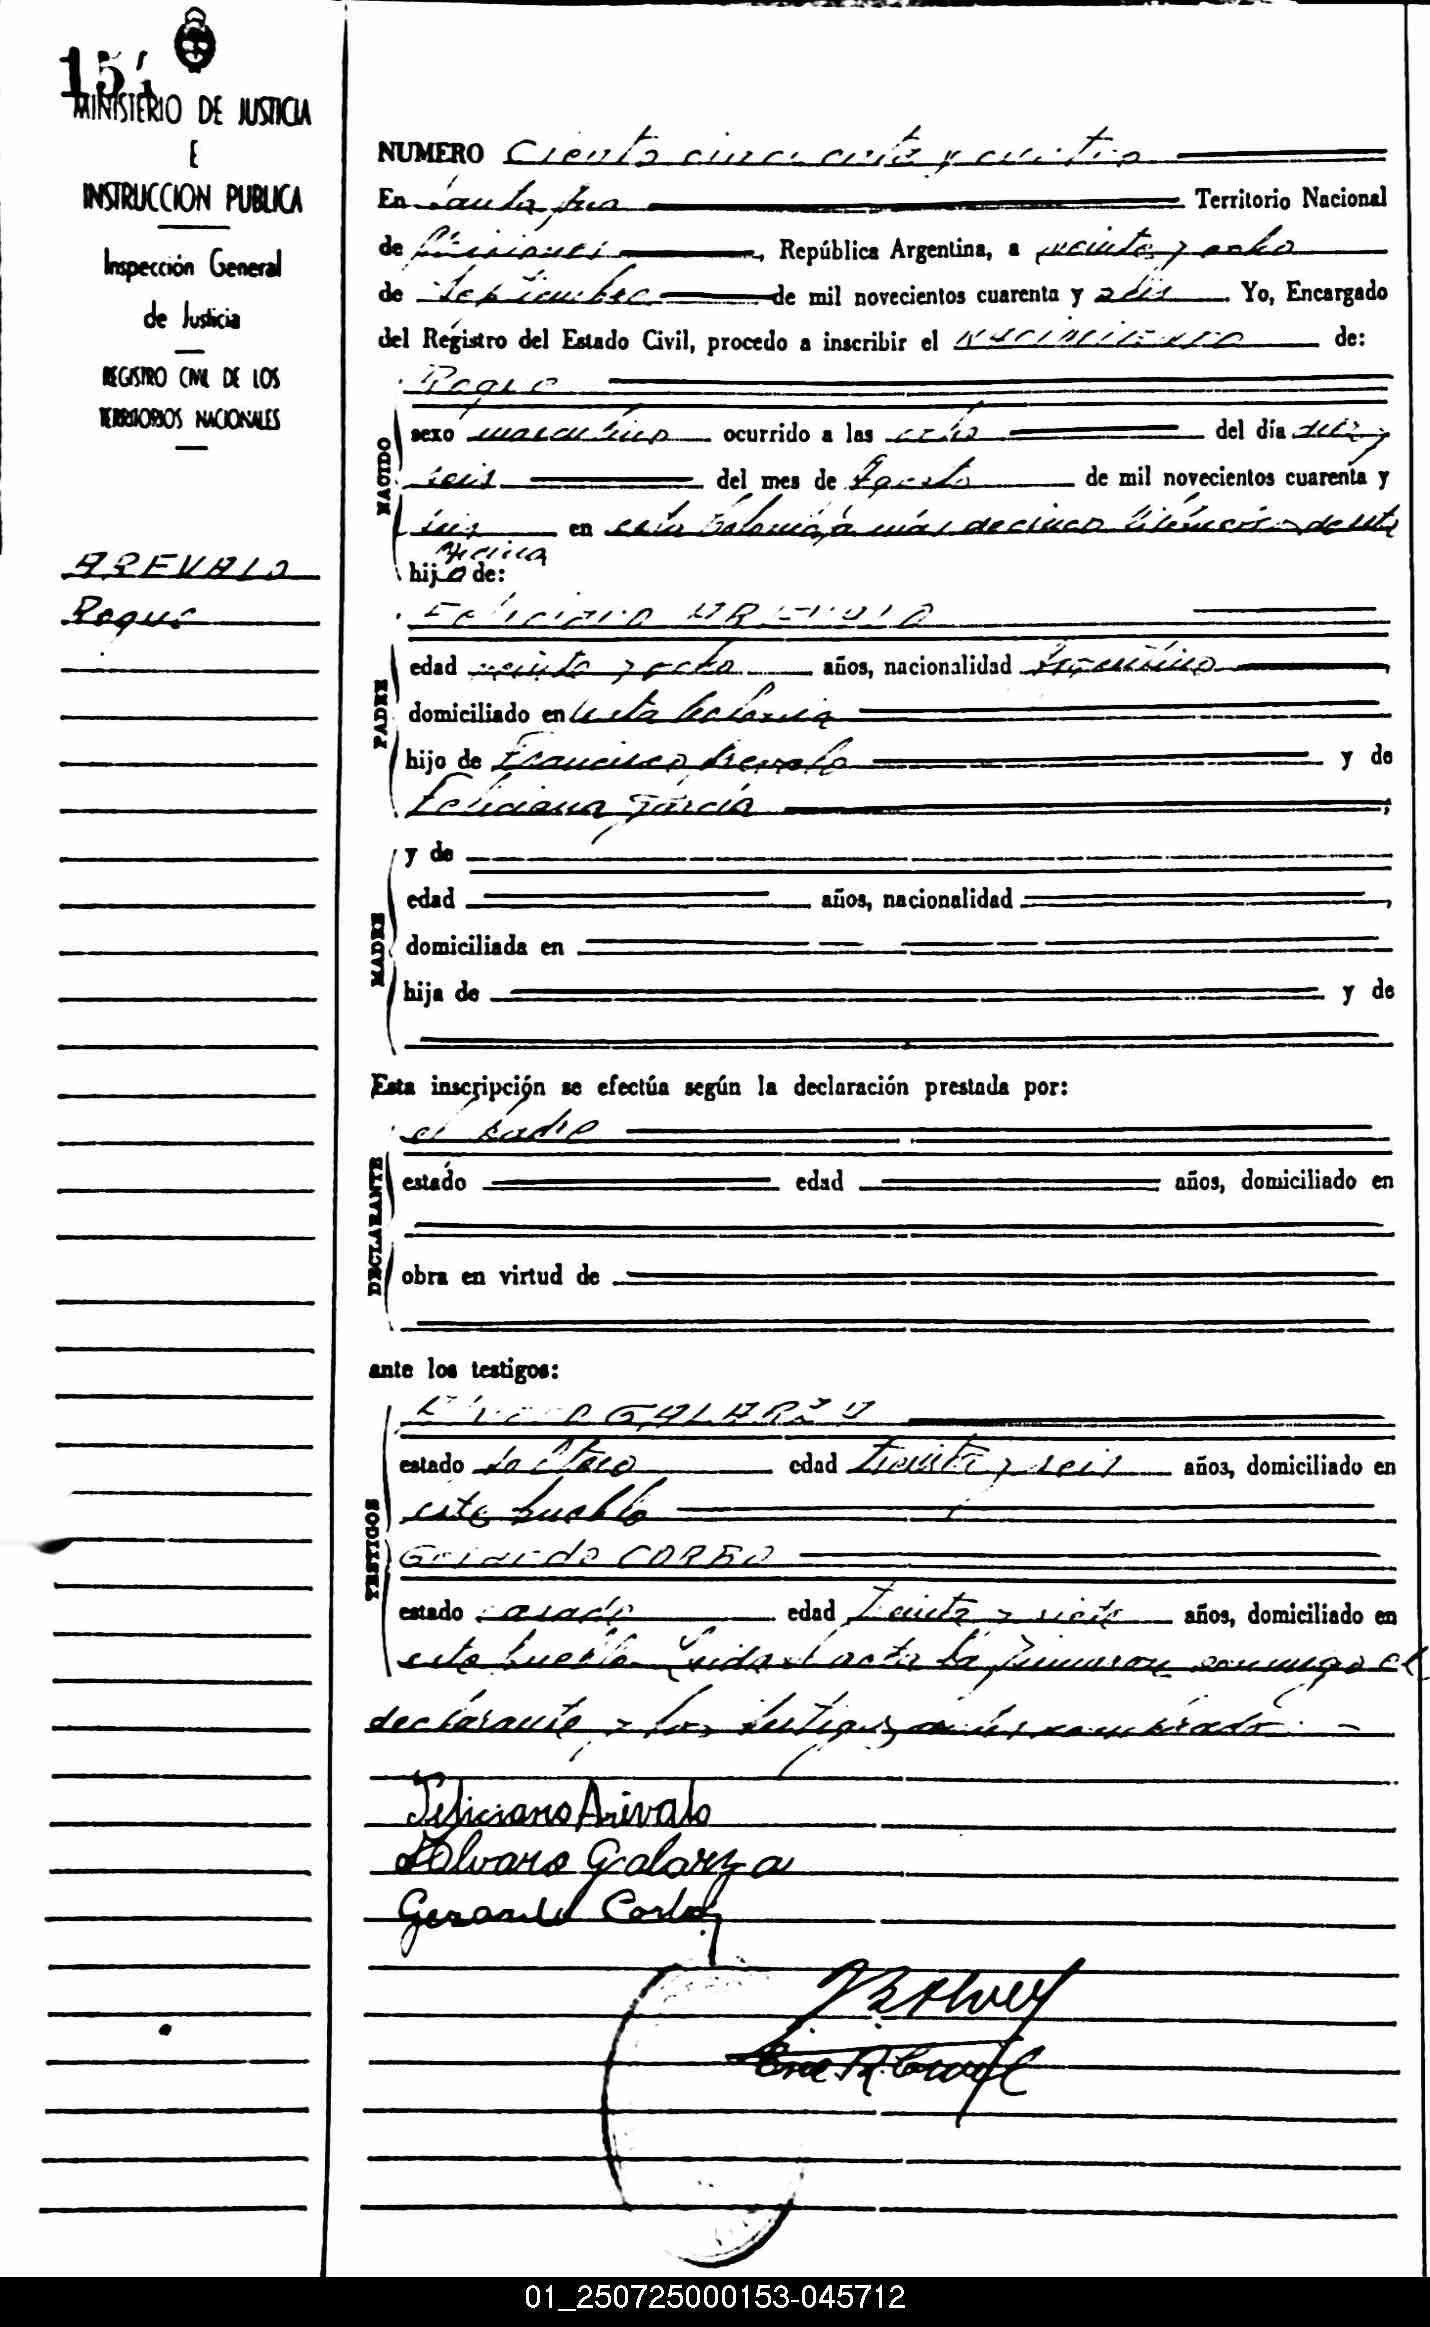 154
MINISTERIO DE JUSTICIA
E
INSTRUCCION PUBLICA
Inspección General
de Justicia
REGISTRO CIVIL DE LOS
TERRITORIOS NACIONALES
AREVALO
Roque
NUMERO Ciento cincuenta y cuatro
En Santa Ana Territorio Nacional
de Misiones, República Argentina, a veinte y ocho
de Septiembre de mil novecientos cuarenta y seis. Yo, Encargado
del Registro del Estado Civil, procedo a inscribir el NACIMIENTO de:
Roque
NACIDO
sexo masculino ocurrido a las ocho del día diez y
seis del mes de Agosto de mil novecientos cuarenta y
seis en esta Colonia, a más de cinco kilómetros de esta
oficina
hijo de:
Feliciano AREVALO
PADRE
edad veinte y ocho años, nacionalidad Argentino,
domiciliado en esta Colonia
hijo de Francisco Arevalo y de
Feliciana García,
MADRE
y de
edad años, nacionalidad,
domiciliada en
hija de y de
Esta inscripción se efectúa según la declaración prestada por:
el padre
DECLARANTE
estado edad años, domiciliado en
obra en virtud de
ante los testigos:
TESTIGOS
GALARZA
estado soltero edad treinta y seis años, domiciliado en
este pueblo
Gerardo
estado casado edad treinta y siete años, domiciliado en
este pueblo. Leida el acta la firmaron conmigo el
declarante y los testigos antes nombrados. —
Feliciano Arevalo
Alvaro Galarza
Gerardo
01_250725000153-045712